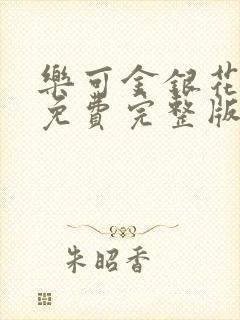 樂可金銀花
免費完整版
朱昭香